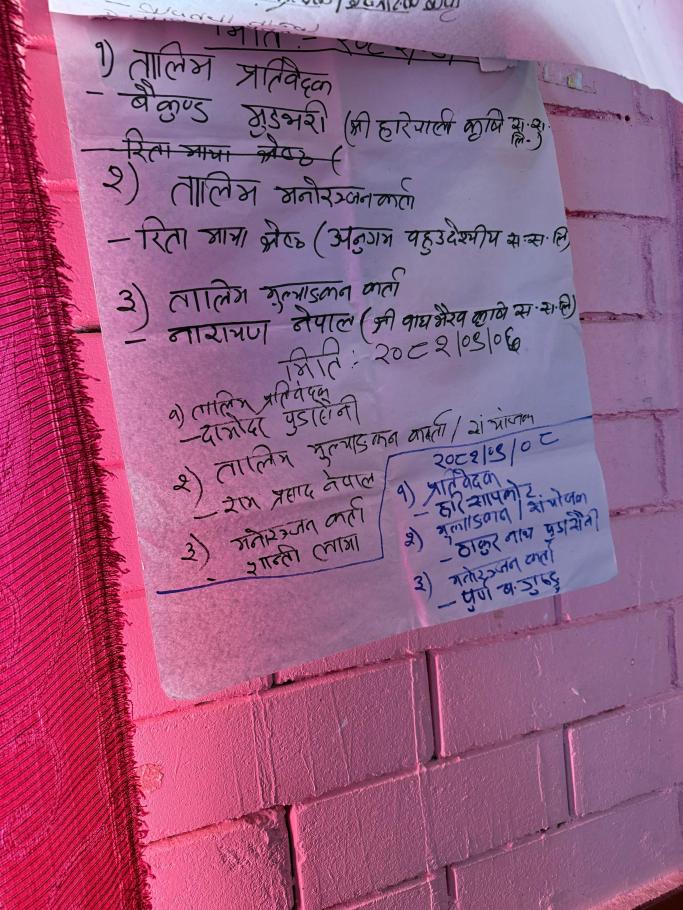 मिति :-
१) तालिम प्रतिवेदक
- बैकुण्ड मुडभरी (श्री हरिपाली कृषि स.स. लि.)
रिता माया श्रेष्ठ (
२) तालिम मनोरञ्जन कर्ता
- रिता माया श्रेष्ठ (अनुगम वहुउदेश्यीय स.स. लि)
३) तालिम मुल्याङकन कर्ता
- नारायण नेपाल (श्री वाघ भैरव कृषि स.स. लि)
मिति :- २०८१/०९/०६
१) तालिम प्रतिवेदक
- दामोदर पुडासैनी
२) तालिम मुल्याङकन कर्ता / संयोजक
- राम प्रसाद नेपाल
३) मनोरञ्जन कर्ता
- शान्ती लामा
२०८१/०९/०८
१) प्रतिवेदक
- हरि सापकोट
२) मुल्याङकन / संयोजक
- ठाकुर नाथ पुडासैनी
३) मनोरञ्जन कर्ता
- पुर्ण ब.